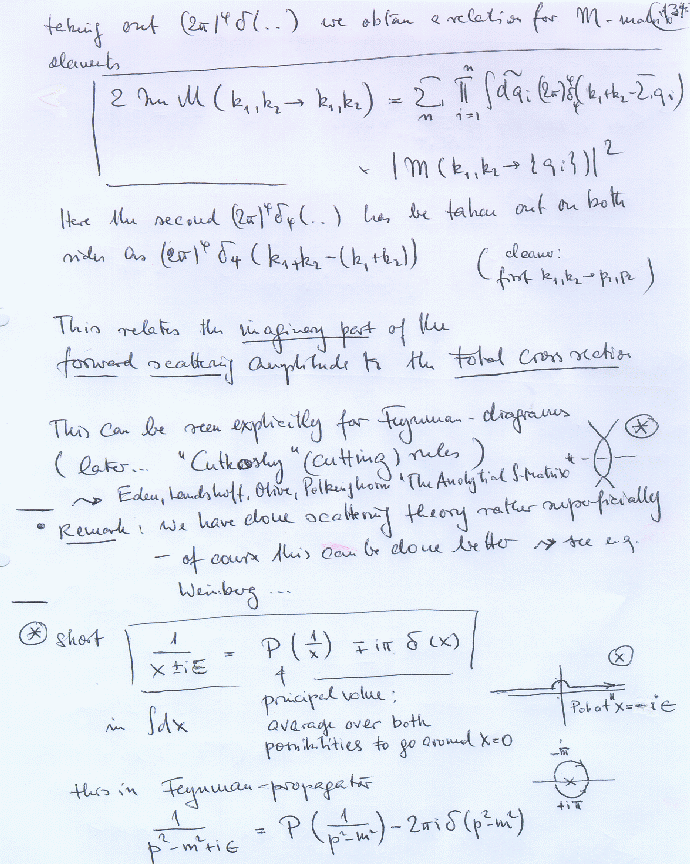 taking out (2π)⁴ δ(..) we obtain a relation for M-matrix
elements
2 Im M (k₁,k₂ → k₁,k₂) = Σ_n ∏_{i=1}^{n} ∫ d̃q_i (2π)⁴δ₄(k₁+k₂-Σq_i)
× |M (k₁,k₂ → {q_i})|²
Here the second (2π)⁴δ₄(..) has be taken out on both
sides as (2π)⁴ δ₄ (k₁+k₂-(k₁+k₂))
(cleaner:
first k₁,k₂ → p₁,p₂)
This relates the imaginary part of the
forward scattering amplitude to the total cross section
This can be seen explicitly for Feynman-diagrams
(later... "Cutkosky" (cutting) rules)
→ Eden, Landshoff, Olive, Polkinghorn "The Analytial S-Matrix"
• Remark: we have done scattering theory rather superficially
- of course this can be done better → see e.g.
Weinberg ...
(*) short 1/(x±iε) = P(1/x) ∓ iπ δ(x)
in ∫dx
principal value:
average over both
possibilities to go around x=0
(x)
Pol at "x=-iε
-iπ
+iπ
this in Feynman-propagator
1/(p²-m²+iε) = P(1/(p²-m²)) - 2πi δ(p²-m²)